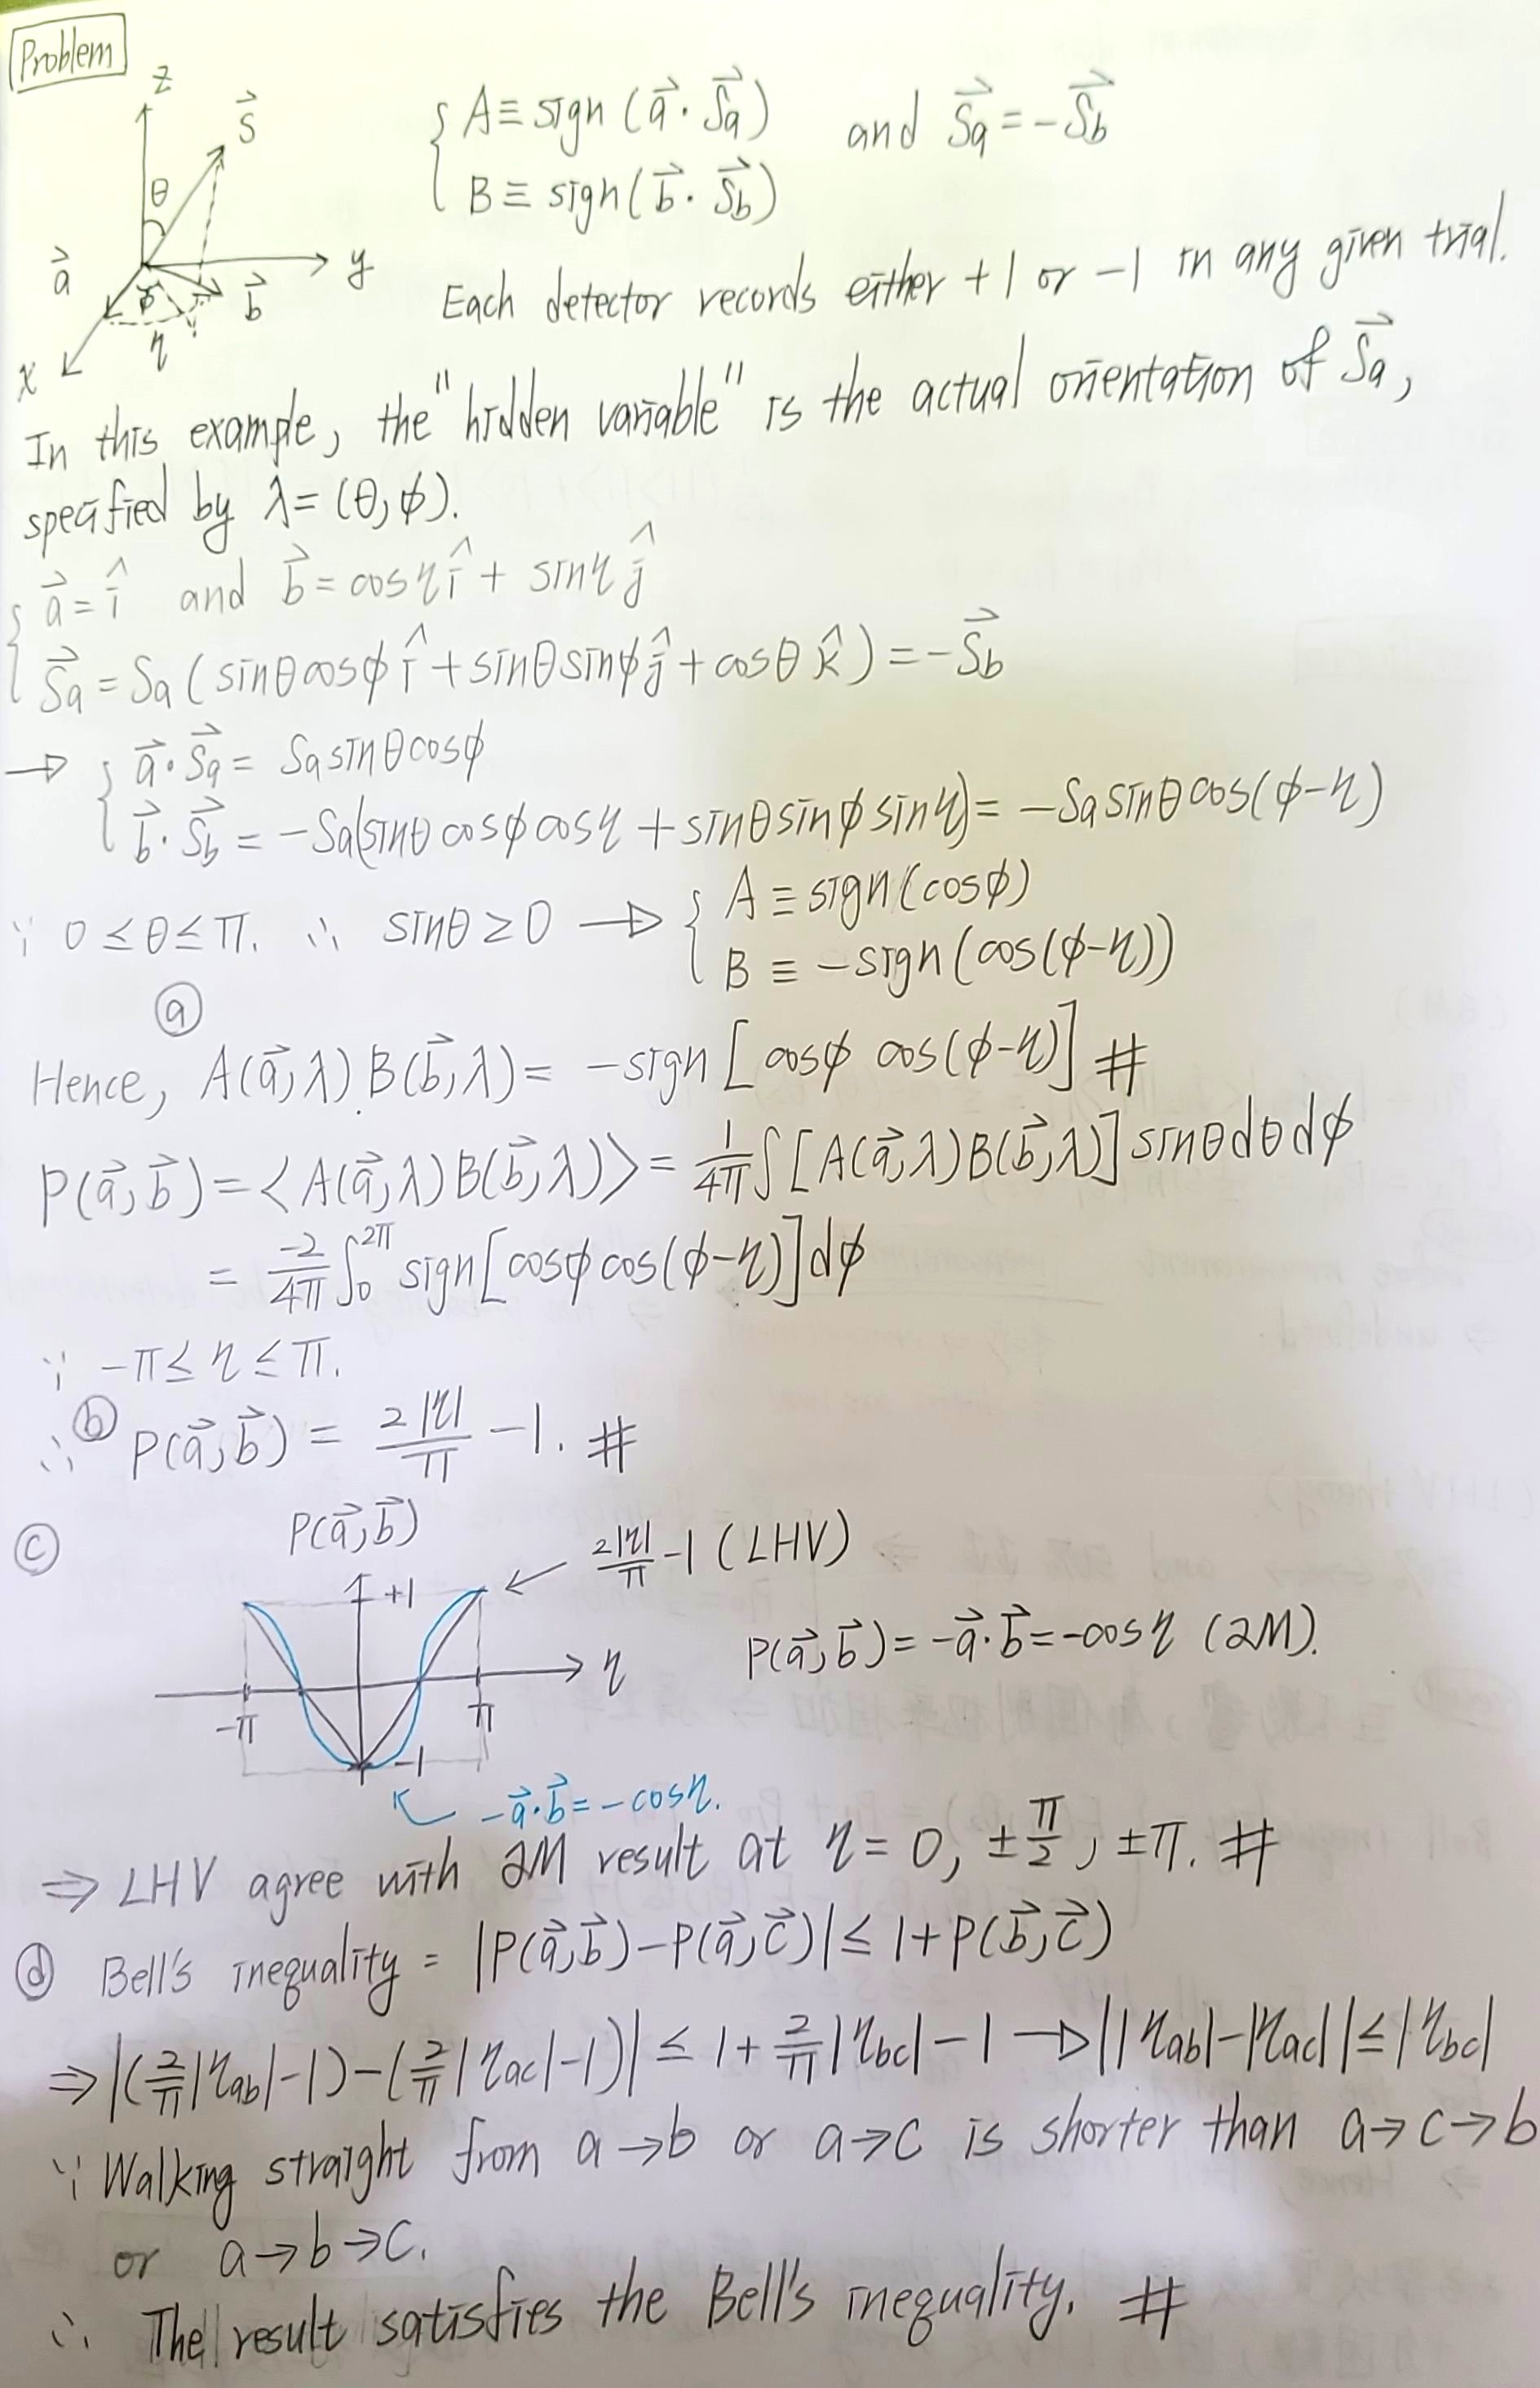 Problem
z
s⃗
θ
y
a⃗
ϕ
b⃗
η
x
{ A ≡ sign (a⃗ · S⃗a) and S⃗a = −S⃗b
B ≡ sign(b⃗ · S⃗b)
Each detector records either +1 or −1 in any given trial.
In this example, the "hidden variable" is the actual orientation of S⃗a,
specified by λ = (θ, ϕ).
{ a⃗ = î and b⃗ = cosη î + sinη ĵ
S⃗a = Sa (sinθcosϕ î + sinθsinϕ ĵ + cosθ k̂) = −S⃗b
→ { a⃗ · S⃗a = Sa sinθcosϕ
b⃗ · S⃗b = −Sa(sinθ cosϕ cosη + sinθ sinϕ sinη) = −Sa sinθ cos(ϕ−η)
∵ 0 ≤ θ ≤ π. ∴ sinθ ≥ 0 → { A ≡ sign(cosϕ)
B ≡ −sign(cos(ϕ−η))
ⓐ
Hence, A(a⃗,λ) B(b⃗,λ) = −sign [cosϕ cos(ϕ−η)] #
P(a⃗,b⃗) = <A(a⃗,λ) B(b⃗,λ)> = 1/4π ∫ [A(a⃗,λ) B(b⃗,λ)] sinθdθdϕ
= −2/4π ∫₀^2π sign[cosϕ cos(ϕ−η)] dϕ
∵ −π ≤ η ≤ π.
∴ ⓑ P(a⃗,b⃗) = 2|η|/π − 1. #
ⓒ P(a⃗,b⃗)
2|η|/π − 1 (LHV)
+1
P(a⃗,b⃗) = −a⃗·b⃗ = −cosη (QM).
η
−π
π
−1
−a⃗·b⃗ = −cosη.
⇒ LHV agree with QM result at η = 0, ±π/2, ±π. #
ⓓ Bell's inequality = |P(a⃗,b⃗) − P(a⃗,c⃗)| ≤ 1 + P(b⃗,c⃗)
⇒ |(2/π|ηab|−1) − (2/π|ηac|−1)| ≤ 1 + 2/π|ηbc| − 1 → ||ηab| − |ηac|| ≤ |ηbc|
∵ Walking straight from a→b or a→c is shorter than a→c→b
or a→b→c.
∴ The result satisfies the Bell's inequality. #